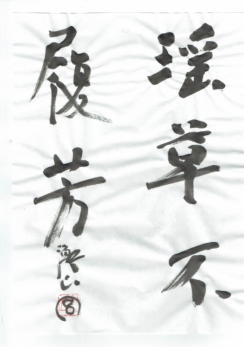 瑶草不
履芳